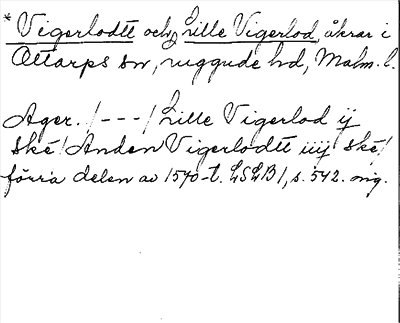 * Vigerlodtt och Lille Vigerlod, åkrar i
Ottarps sn, ruggude hd, Malm. l.
Ager. /---/ Lille Vigerlod ij
ske/Anden Vigerlodtt iiij ske/
förra delen av 1570-t. LSLB 1, s. 542. orig.